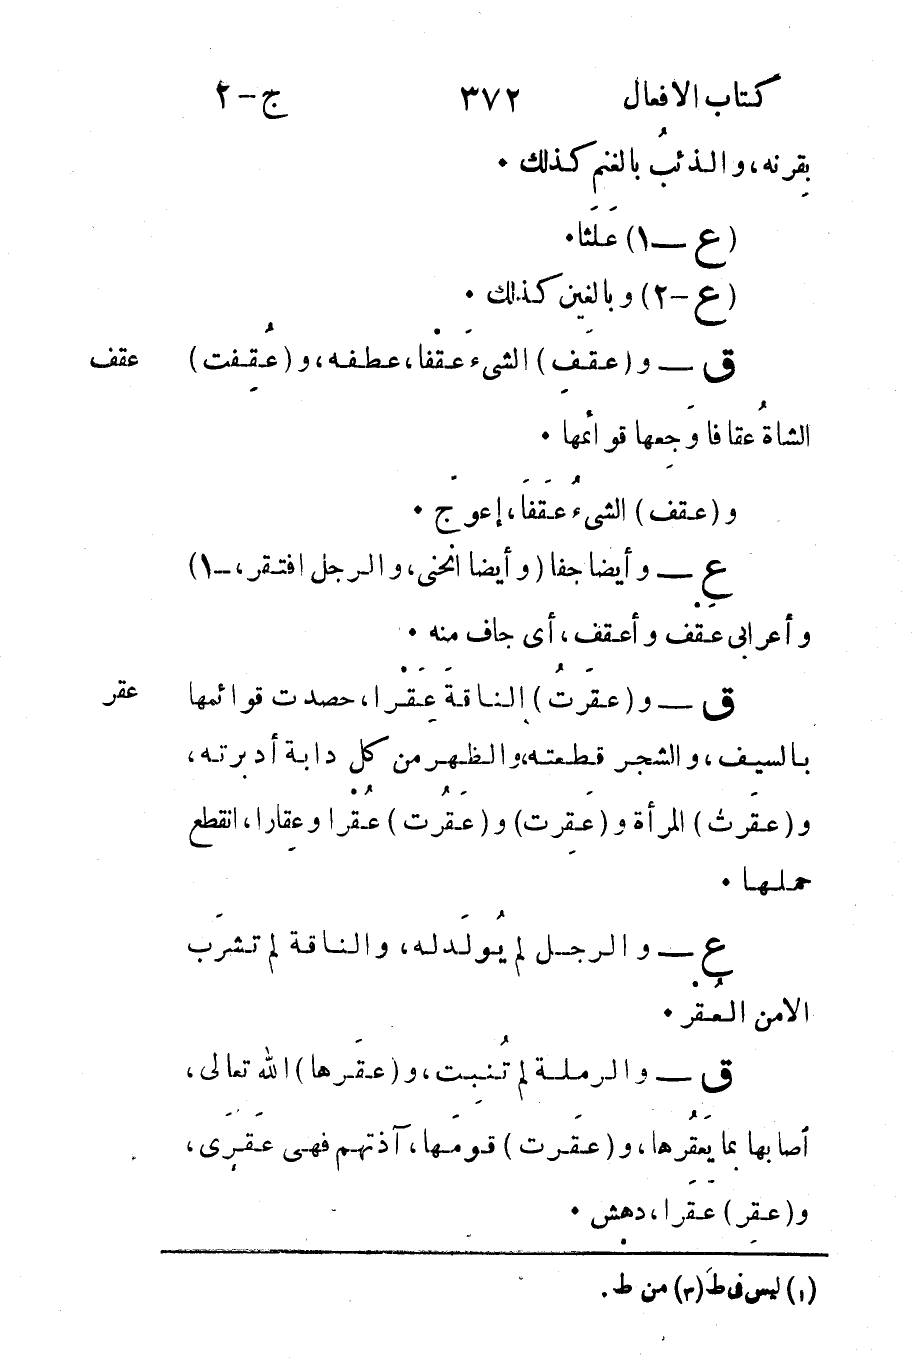 كتاب الافعال ٣٧٢ ج-٢
بقرنه، والذئبُ بالغنم كذلك •
(ع — ١) عَلَثا •
(ع -٢) وبالغين كذلك •
ق — و (عقَفِ) الشىء عَقْفا، عطفه، و (عُقِفت) عقف
الشاةُ عقافا وَجِعها قوائمها •
و (عقف) الشىءُ عَقَفَا، إعوجّ •
ع — وأيضا جفا (وأيضا انحنى، والرجل افتقر، -١)
وأعرابى عقْف وأعقف، أى جاف منه •
ق — و (عقَرتُ) الناقةَ عَقْرا، حصدت قوائمها عقر
بالسيف، والشجر قطعته، والظهر من كل دابة أدبرته،
و (عقَرتْ) المرأة و (عقِرت) و (عَقُرت) عُقْرا وعِقارا، انقطع
حملها •
ع — والرجل لم يُولَد له، والناقة لم تشرَب
الا من العُقْر •
ق — والرملة لم تُنبِت، و (عقَرها) الله تعالى،
أصابها بما يَعقُرها، و (عقَرت) قومَها، آذتهم فهى عَقَرَى،
و (عقِر) عَقَرا، دهِش •
(١) ليس فى ط (٣) من ط .